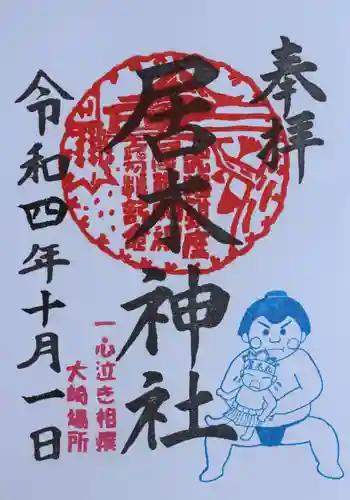 奉拝
居木神社
令和四年十月一日
一心泣き相撲
大崎場所